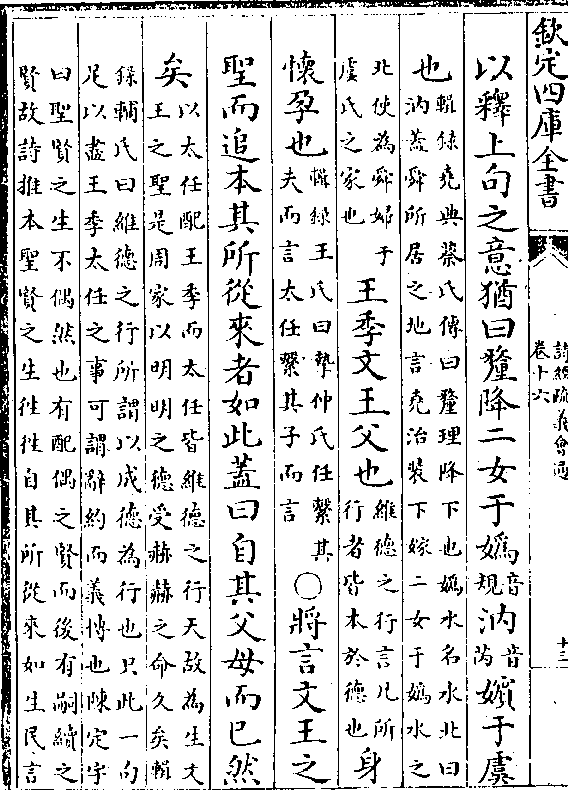 欽定四庫全書
詩經疏義會通
卷十六
十三
以釋上句之意猶曰釐降二女于嬀音規汭音芮嬪于虞
也輯錄堯典蔡氏傳曰釐理降下也嬀水名水北曰
汭蓋舜所居之地言堯治裝下嫁二女于嬀水之
北使為舜婦于
虞氏之家也
王季文王父也維德之行言凡所
行者皆本於德也身
懷孕也輯錄王氏曰摯仲氏任繫其
夫而言太任繫其子而言
○將言文王之
聖而追本其所從來者如此蓋曰自其父母而已然
矣以太任配王季而太任皆維德之行天故為生文
王之聖是周家以明明之德受赫赫之命久矣輯
錄輔氏曰維德之行所謂以成德為行也只此一句
足以盡王季太任之事可謂辭約而義博也陳定宇
曰聖賢之生不偶然也有配偶之賢而後有嗣續之
賢故詩推本聖賢之生徃徃自其所從來如生民言